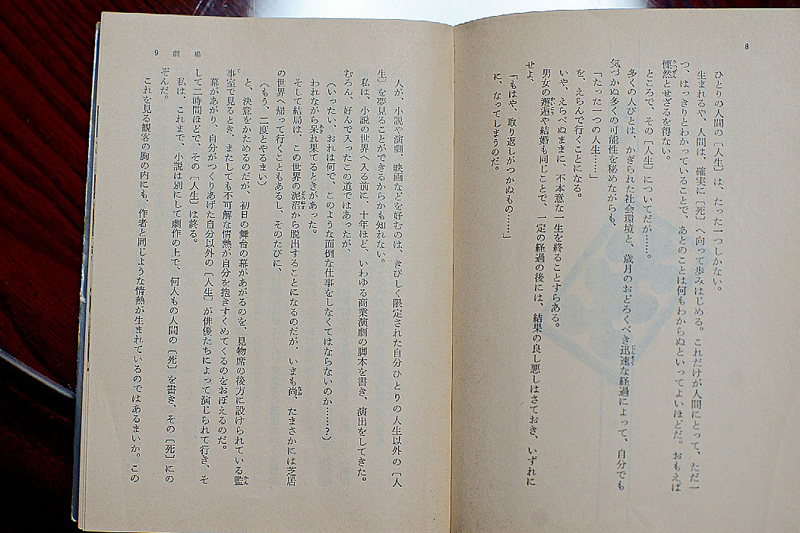 8
ひとりの人間の〔人生〕は、たった一つしかない。
生まれるや、人間は、確実に〔死〕へ向って歩みはじめる。これだけが人間にとって、ただ一
つ、はっきりとわかっていることで、あとのことは何もわからぬといってよいほどだ。おもえば
慄然とせざるを得ない。
ところで、その〔人生〕についてだが……。
多くの人びとは、かぎられた社会環境と、歳月のおどろくべき迅速な経過によって、自分でも
気づかぬ多くの可能性を秘めながらも、
「たった一つの人生……」
を、えらんで行くことになる。
いや、えらべぬままに、不本意な一生を終ることすらある。
男女の邂逅や結婚も同じことで、一定の経過の後には、結果の良し悪しはさておき、いずれに
せよ、
「もはや、取り返しがつかぬもの……」
に、なってしまうのだ。
9 劇場
人が、小説や演劇、映画などを好むのは、きびしく限定された自分ひとりの人生以外の〔人
生〕を夢見ることができるからかも知れない。
私は、小説の世界へ入る前に、十年ほど、いわゆる商業演劇の脚本を書き、演出をしてきた。
むろん、好んで入ったこの道ではあったが、
（いったい、おれは何で、このような面倒な仕事をしなくてはならないのか……？）
われながら呆れ果てるときがあった。
そして結局は、この世界の泥沼から脱出することになるのだが、いまも尚、たまさかには芝居
の世界へ帰って行くこともあるし、そのたびに、
（もう、二度とやるまい）
と、決意をかためるのだが、初日の舞台の幕があがるのを、見物席の後方に設けられている監
事室で見るとき、またしても不可解な情熱が自分を抱きすくめてくるのをおぼえるのだ。
幕があがり、自分がつくりあげた自分以外の〔人生〕が俳優たちによって演じられて行き、そ
して二時間ほどで、その〔人生〕は終る。
私は、これまで、小説は別にして劇作の上で、何人もの人間の〔死〕を書き、その〔死〕にの
ぞんだ。
これを見る観客の胸の内にも、作者と同じような情熱が生まれているのではあるまいか。この